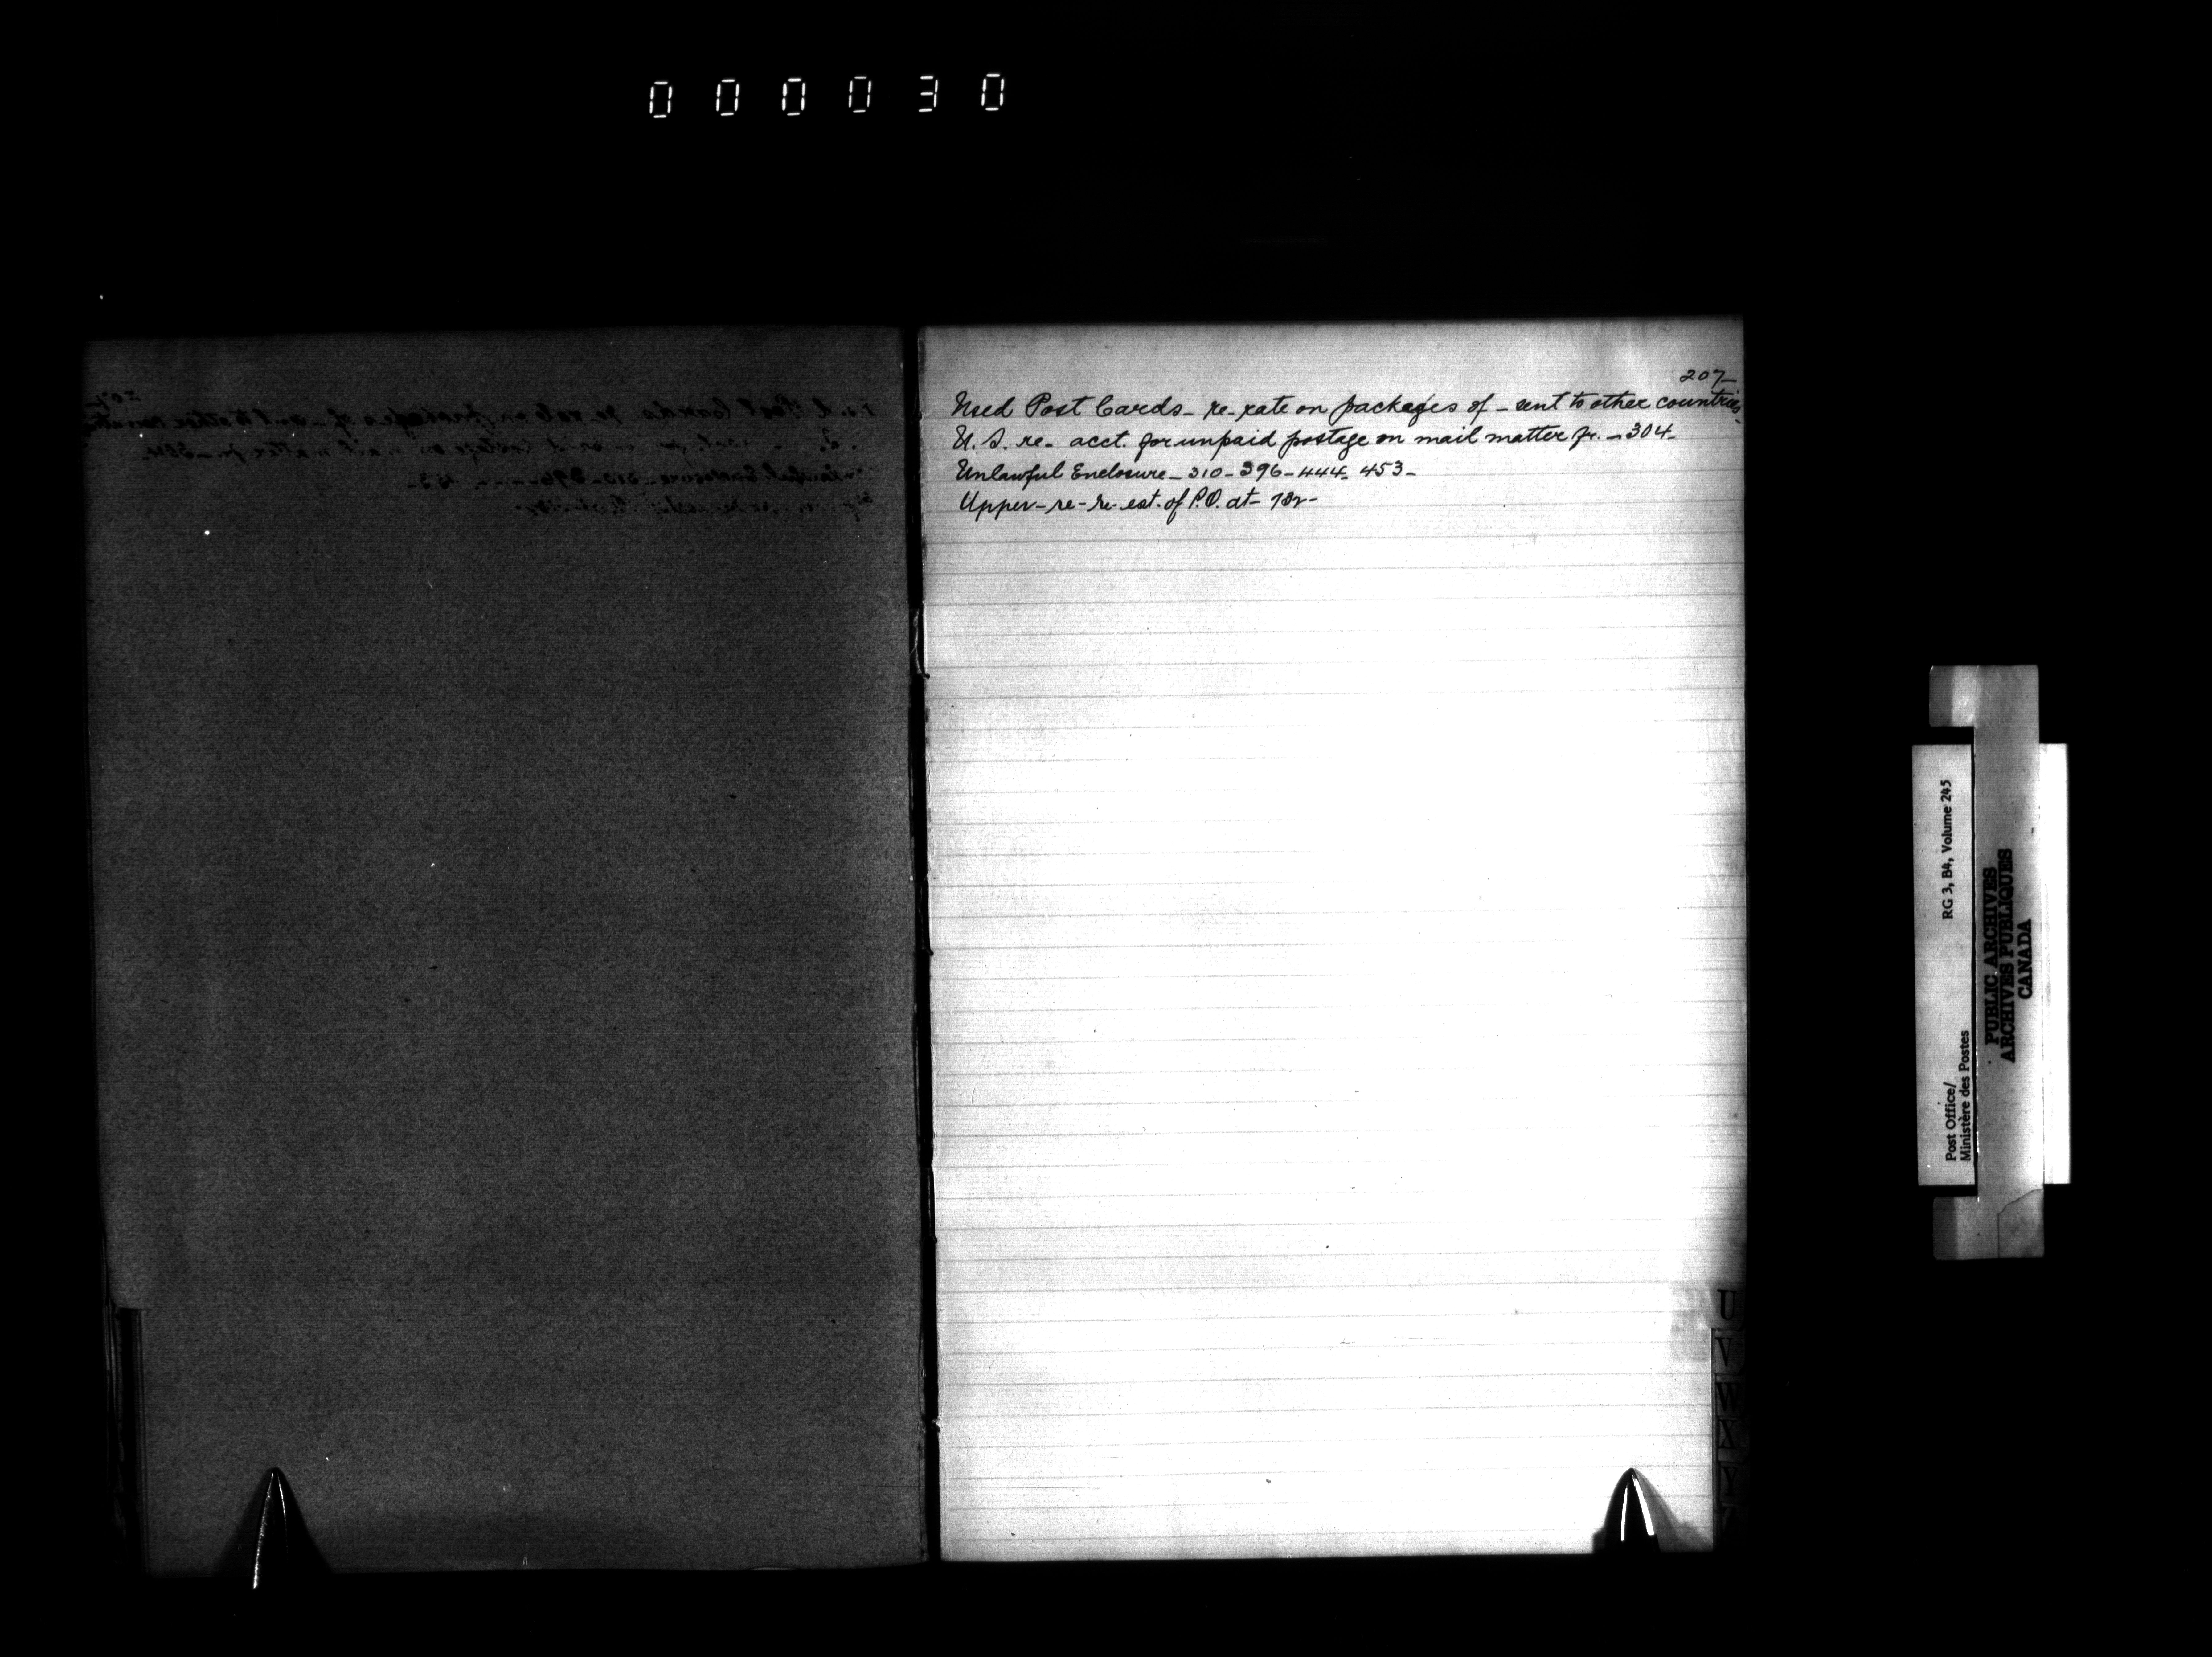 000030
207
Used Post Cards - re - rate on packages of - sent to other countries -
U.S. re - acct. for unpaid postage on mail matter fr. - 304 -
Unlawful Enclosure - 310 - 396 - 444 - 453 -
Upper - re - re - est. of P.O. at -
U
V
W
X
Y
RG 3, B4, Volume 245
Post Office/
Ministère des Postes
PUBLIC ARCHIVES
ARCHIVES PUBLIQUES
CANADA